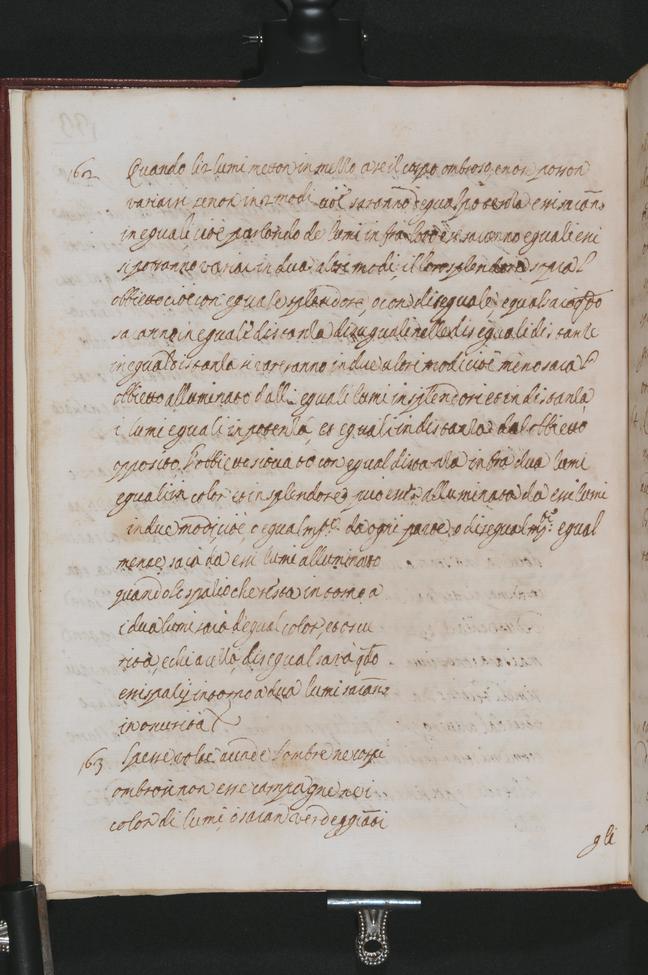 162 Quando li 2 lumi metton in mezzo a se il corpo ombroso, e non posson
variarsi se non in 2 modi cioè saranno d'equal potentia essi saran
inequali cioè parlando de lumi infra loro e se saranno equali essi
si potranno variar in dua altri modi, il loro splendore sopra l
obbietto cioè con equale splendore, o con disequale equal sarà qdo
saranno in equale distantia disequali nelle disequali distantie
in equal distantia si varieranno in due altri modi cioè meno sarà l
obbietto alluminato dalli equali lumi in splendori et in distantia
i lumi equali in potentia, et equali in distantia dal obbietto
opposito. l'obbietto situato con equal distantia infra dua lumi
equali in color et in splendore può esser alluminato da essi lumi
in due modi, cioè, o equalmte. da ogni parte, o disequalmte. equal
mente, sarà da essi lumi alluminato
quando lo spatio che resta intorno a
i dua lumi sarà d'equal color, et oscu
rità, e chiarezza, disequal sarà qdo
essi spatij intorno a dua lumi saran
in oscurità
163 Spesse volte accade l'ombre ne corpi
ombrosi non esser compagne nei
color di lumi, o saran verdeggiati
gli